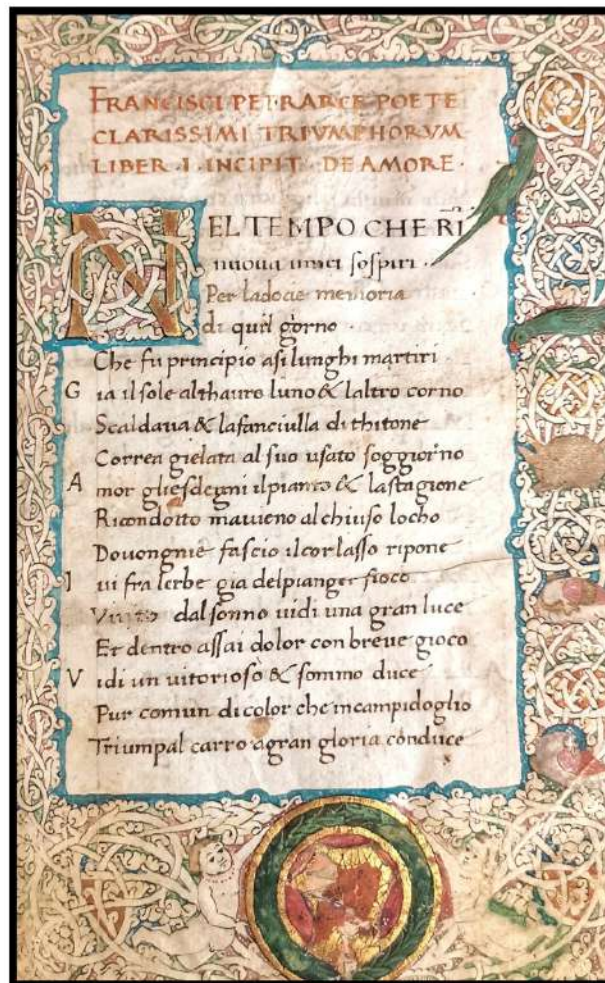 FRANCISCI PETRARCE POETE
CLARISSIMI TRIVMPHORVM
LIBER · I · INCIPIT · DE AMORE ·
NEL TEMPO CHE RĪ
nuoua imiei sospiri ·
Per ladocie memoria
di quel gorno
Che fu principio asi lunghi martiri ·
G ia il sole althauro luno & laltro corno
Scaldaua & lafanciulla di thitone
Correa gielata al suo usato soggiorno
A mor gliesdegni ilpianto & lastagione
Ricondotto mauieno al chiuso locho
Douongnie fascio ilcor lasso ripone
I ui fra lerbe gia delpianger fioco
Vinto dal sonno uidi una gran luce
Et dentro assai dolor con breue gioco
V idi un uitorioso & sommo duce
Pur comun di color che incampidoglio
Triumpal carro agran gloria conduce